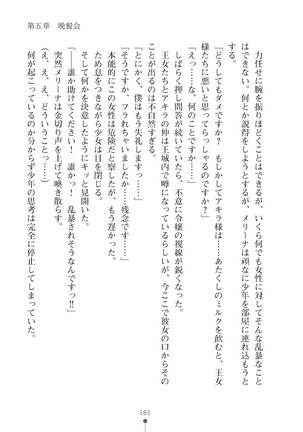 第五章　晩餐会
力任せに腕を振りほどくことはできるが、いくら何でも女性に対してそんな乱暴なこと
はできない。何とか説得をしようとするが、メリーナは頑なに少年を部屋に連れ込もうと
する。
「どうしてもダメですか？　もしかしてアキラ様は……あたくしのミルクを飲むと、王女
様たちに悪いと思ってらっしゃるのですか？」
「えっ……な、何のことですか……」
王女たちとアキラの仲は王城内で噂になっているらしいが、今ここで彼女の口からその
ことが出るのは不自然すぎる。
しばらく押し問答が続いていたら、不意に令嬢の視線が鋭くなった。
「とにかく、僕はもう失礼します……」
「そうですか、フラれちゃいましたか……残念です……」
本能的にこの女性は危険だと察したが、もう遅かった。
ため息をつきながら少女は目を閉じる。
そして何かを決意したようにキッと見開いた。
「――誰か助けてください！　誰か――っ！　乱暴されそうなんですっ！」
突然メリーナは金切り声を上げて喚き散らす。
（え、え、え、どういうことっ……）
何が起こっているのか分からず少年の思考は完全に停止してしまっていた。
181